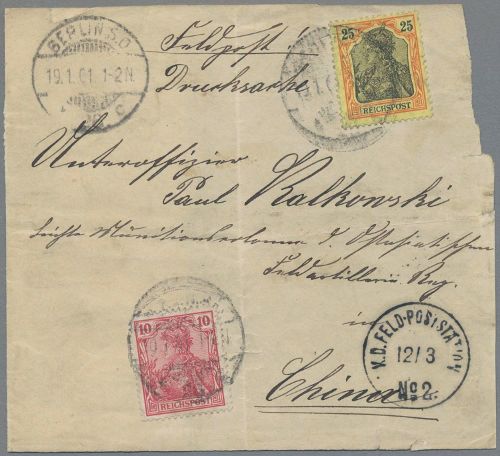 BERLIN S.O.
19.1.01 1-2N
c
Feldpost
Drucksache
25 25
REICHSPOST
Unteroffizier
Paul Kalkowski
leichte Munitionskolonne d. Ostasiatischen
Feldartillerie Reg.
in
China
10 10
REICHSPOST
K.D. FELD-POSTSTATION
12/3
No 2.